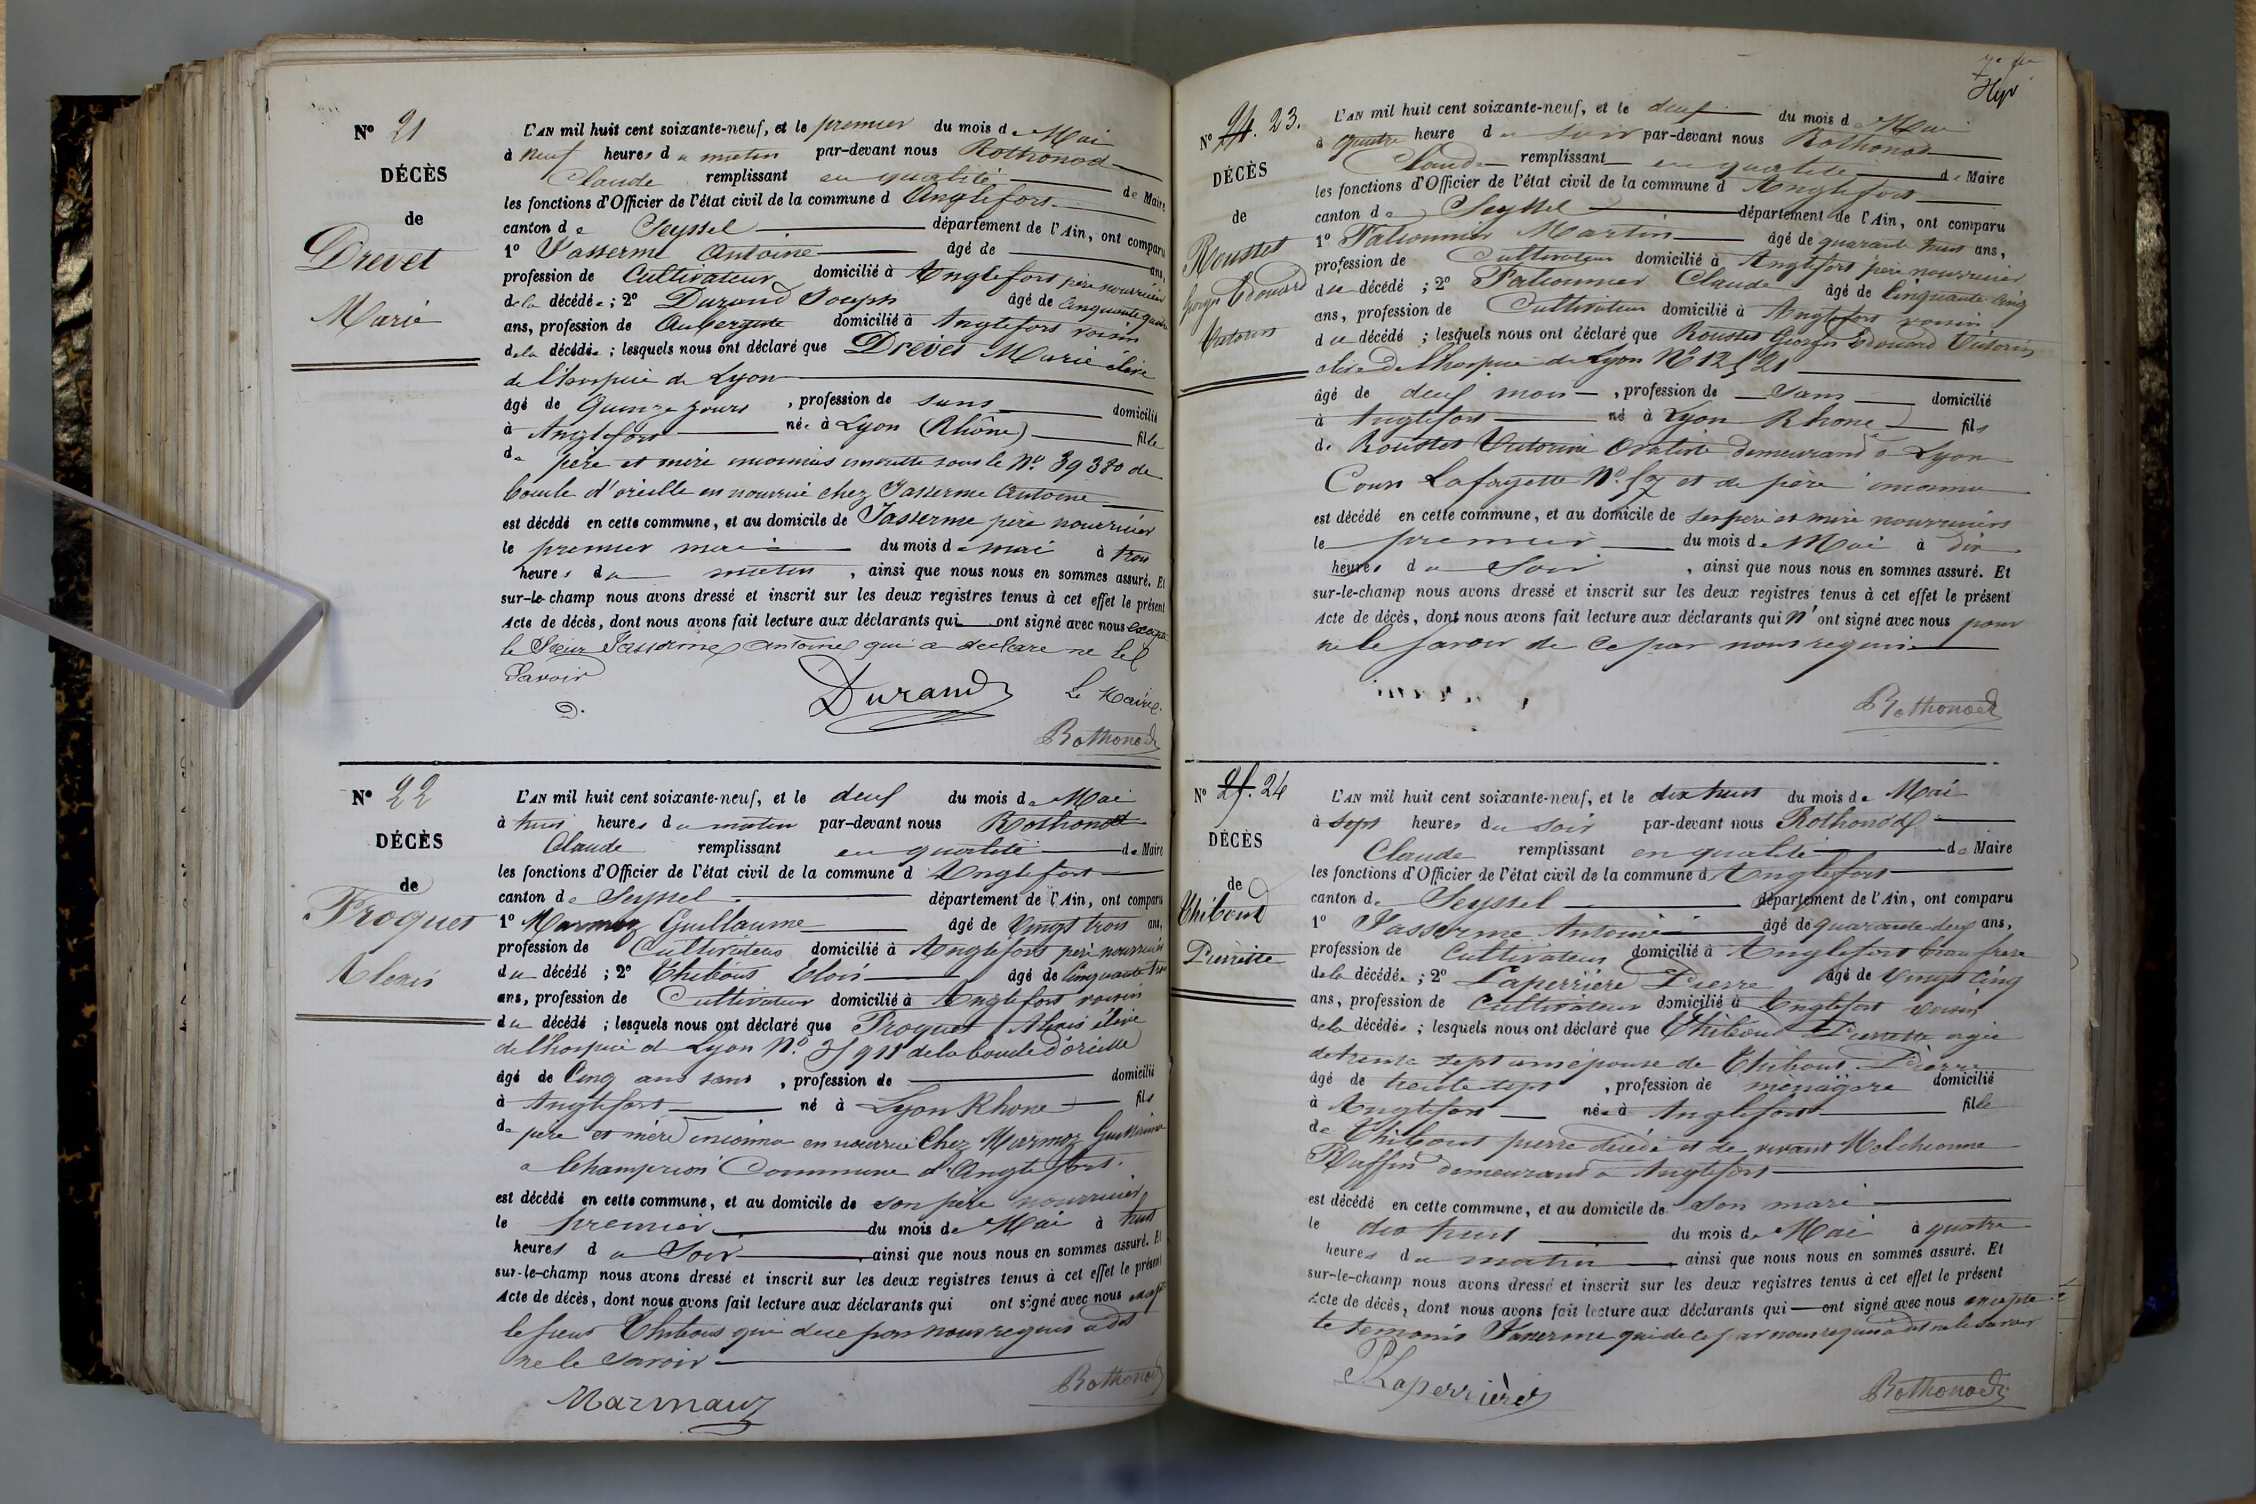 N° 21
DÉCÈS
de
Drevet
Marie
L'AN mil huit cent soixante-neuf, et le premier du mois de Mai
à neuf heures du matin par-devant nous Rothonod
Claude remplissant en qualité de Maire
les fonctions d'Officier de l'état civil de la commune d Anglefort
canton de Seyssel département de l'Ain, ont comparu
1° Jasserme Antoine âgé de ans,
profession de Cultivateur domicilié à Anglefort père nourricier
de la décédée ; 2° Durand Joseph âgé de Cinquante quatre
ans, profession de Aubergiste domicilié à Anglefort voisin
de la décédée ; lesquels nous ont déclaré que Drevet Marie élève
de l'hospice de Lyon
âgé de Quinze jours , profession de sans domicilié
à Anglefort née à Lyon (Rhône) fille
de père et mère inconnus inscritte sous le N° 39380 de
boucle d'oreille en nourrice chez Jasserme Antoine
est décédé en cette commune, et au domicile de Jasserme père nourricier
le premier mai du mois de mai à trois
heures du matin , ainsi que nous nous en sommes assuré. Et
sur-le-champ nous avons dressé et inscrit sur les deux registres tenus à cet effet le présent
Acte de décès, dont nous avons fait lecture aux déclarants qui ont signé avec nous excepté
le Sieur Jasserme Antoine qui a declare ne le
Savoir
D.
Durand Le Maire
Rothonod
N° 22
DÉCÈS
de
Froquet
Alexis
L'AN mil huit cent soixante-neuf, et le deux du mois de Mai
à huit heures du matin par-devant nous Rothonod
Claude remplissant en qualité de Maire
les fonctions d'Officier de l'état civil de la commune d Anglefort
canton de Seyssel département de l'Ain, ont comparu
1° Marmoz Guillaume âgé de Vingt trois ans,
profession de Cultivateur domicilié à Anglefort père nourricier
du décédé ; 2° Thibout Eloi âgé de Cinquante trois
ans, profession de Cultivateur domicilié à Anglefort voisin
du décédé ; lesquels nous ont déclaré que Froquet Alexis élève
de l'hospice d Lyon N° 35911 de la boucle d'oreille
âgé de Cinq ans sans , profession de domicilié
à Anglefort né à Lyon Rhone fils
de père et mère inconnu en nourrice Chez Marmoz Guillaume
a Champrion Commune d'Anglefort.
est décédé en cette commune, et au domicile de son père nourricier
le premier du mois de Mai à huit
heures du Soir ainsi que nous nous en sommes assuré. Et
sur-le-champ nous avons dressé et inscrit sur les deux registres tenus à cet effet le présent
Acte de décès, dont nous avons fait lecture aux déclarants qui ont signé avec nous excepté
le sieur Thibout qui de ce par nous requis a dit
ne le savoir
Marmauz Rothonod
N° 24. 23.
DÉCÈS
de
Roustet
Georges Edouard
Victorin
L'AN mil huit cent soixante-neuf, et le deux du mois de Mai
à quatre heure du soir par-devant nous Rothonod
Claude remplissant en qualité de Maire
les fonctions d'Officier de l'état civil de la commune d Anglefort
canton de Seyssel département de l'Ain, ont comparu
1° Falconnier Martin âgé de quarante huit ans,
profession de Cultivateur domicilié à Anglefort père nourricier
du décédé ; 2° Falconnier Claude âgé de Cinquante cinq
ans, profession de Cultivateur domicilié à Anglefort voisin
du décédé ; lesquels nous ont déclaré que Roustet Georges Edouard Victorin
élève De l'hospice de Lyon N° 12521
âgé de deux mois , profession de Sans domicilié
à Anglefort né à Lyon Rhone fils
de Roustet Victorine demeurand à Lyon
Cours Lafayette N° 57 et de père inconnu
est décédé en cette commune, et au domicile de ses père et mère nourriciers
le premier du mois de Mai à dix
heures du Soir , ainsi que nous nous en sommes assuré. Et
sur-le-champ nous avons dressé et inscrit sur les deux registres tenus à cet effet le présent
Acte de décès, dont nous avons fait lecture aux déclarants qui n'ont signé avec nous pour
ne le savoir de ce par nous requis
Rothonod
N° 25. 24
DÉCÈS
de
Thibout
Pierrette
L'AN mil huit cent soixante-neuf, et le dix huit du mois de Mai
à sept heures du soir par-devant nous Rothonod
Claude remplissant en qualité de Maire
les fonctions d'Officier de l'état civil de la commune d Anglefort
canton de Seyssel département de l'Ain, ont comparu
1° Jasserme Antoine âgé de quarante deux ans,
profession de Cultivateur domicilié à Anglefort beau frere
de la décédée ; 2° Laperrière Pierre âgé de Vingt Cinq
ans, profession de Cultivateur domicilié à Anglefort voisin
de la décédée ; lesquels nous ont déclaré que Thibout Pierrette agée
de trente sept ans épouse de Thibout Pierre
âgé de trente sept , profession de ménagère domicilié
à Anglefort née à Anglefort fille
de Thibout pierre décédé et de vivant Melchionne
Ruffin demeurand a Anglefort
est décédé en cette commune, et au domicile de son mari
le dix huit du mois de Mai à quatre
heures du matin ainsi que nous nous en sommes assuré. Et
sur-le-champ nous avons dressé et inscrit sur les deux registres tenus à cet effet le présent
Acte de décès, dont nous avons fait lecture aux déclarants qui ont signé avec nous excepté
le temoin Jasserme qui de ce par nous requis a dit ne le savoir
PLaperrière Rothonod